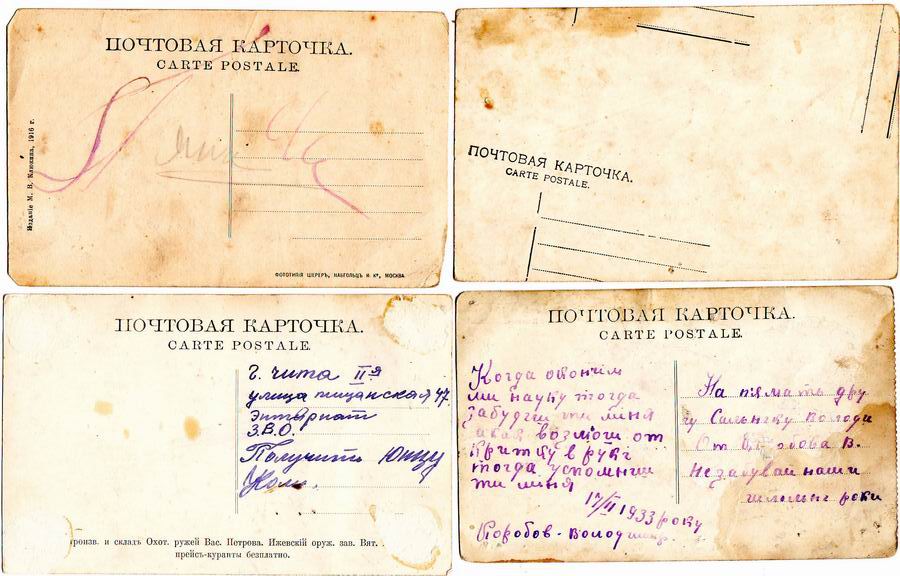 ПОЧТОВАЯ КАРТОЧКА.
CARTE POSTALE.
Изданіе М. В. Клюкина, 1916 г.
ФОТОТИПІЯ ШЕРЕРЪ, НАБГОЛЬЦЪ И Кº, МОСКВА
ПОЧТОВАЯ КАРТОЧКА.
CARTE POSTALE.
ПОЧТОВАЯ КАРТОЧКА.
CARTE POSTALE.
г. Чита II-я
улица 47
З.В.О.
Получить
произв. и складъ Охот. ружей Вас. Петрова. Ижевскій оруж. зав. Вят.
прейсъ-куранты безплатно.
ПОЧТОВАЯ КАРТОЧКА.
CARTE POSTALE.
Когда окончім
ми науку тогда
забудеш ти міня
возмош от
критку в рукі
тогда успомніш
ти міня
17/II 1933 року
Коробов
На памать дру
гу Володі
От В.
Незабувай наши
роки